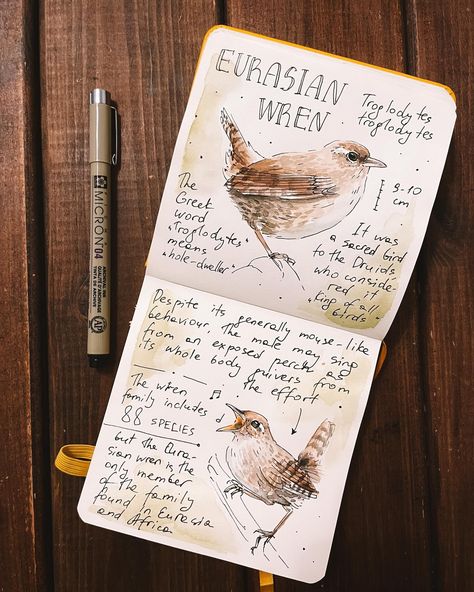 EURASIAN
WREN
Troglodytes
troglodytes
9-10
cm
The
Greek
word
"Troglodytes"
means
"hole-dweller"
It was
a sacred bird
to the Druids
who conside-
red it
"King of all
birds"
Despite its generally mouse-like
behaviour, the male may sing
from an exposed perch as
its whole body quivers from
the effort
The wren
family includes
88 SPELIES
but the Eura-
sian wren is the
only member
of the family
found in Eurasia
and Africa
MICRON 04
ARCHIVAL INK
QUALITÉ D'ARCHIVAGE
TINTA DE ARCHIVO
AP